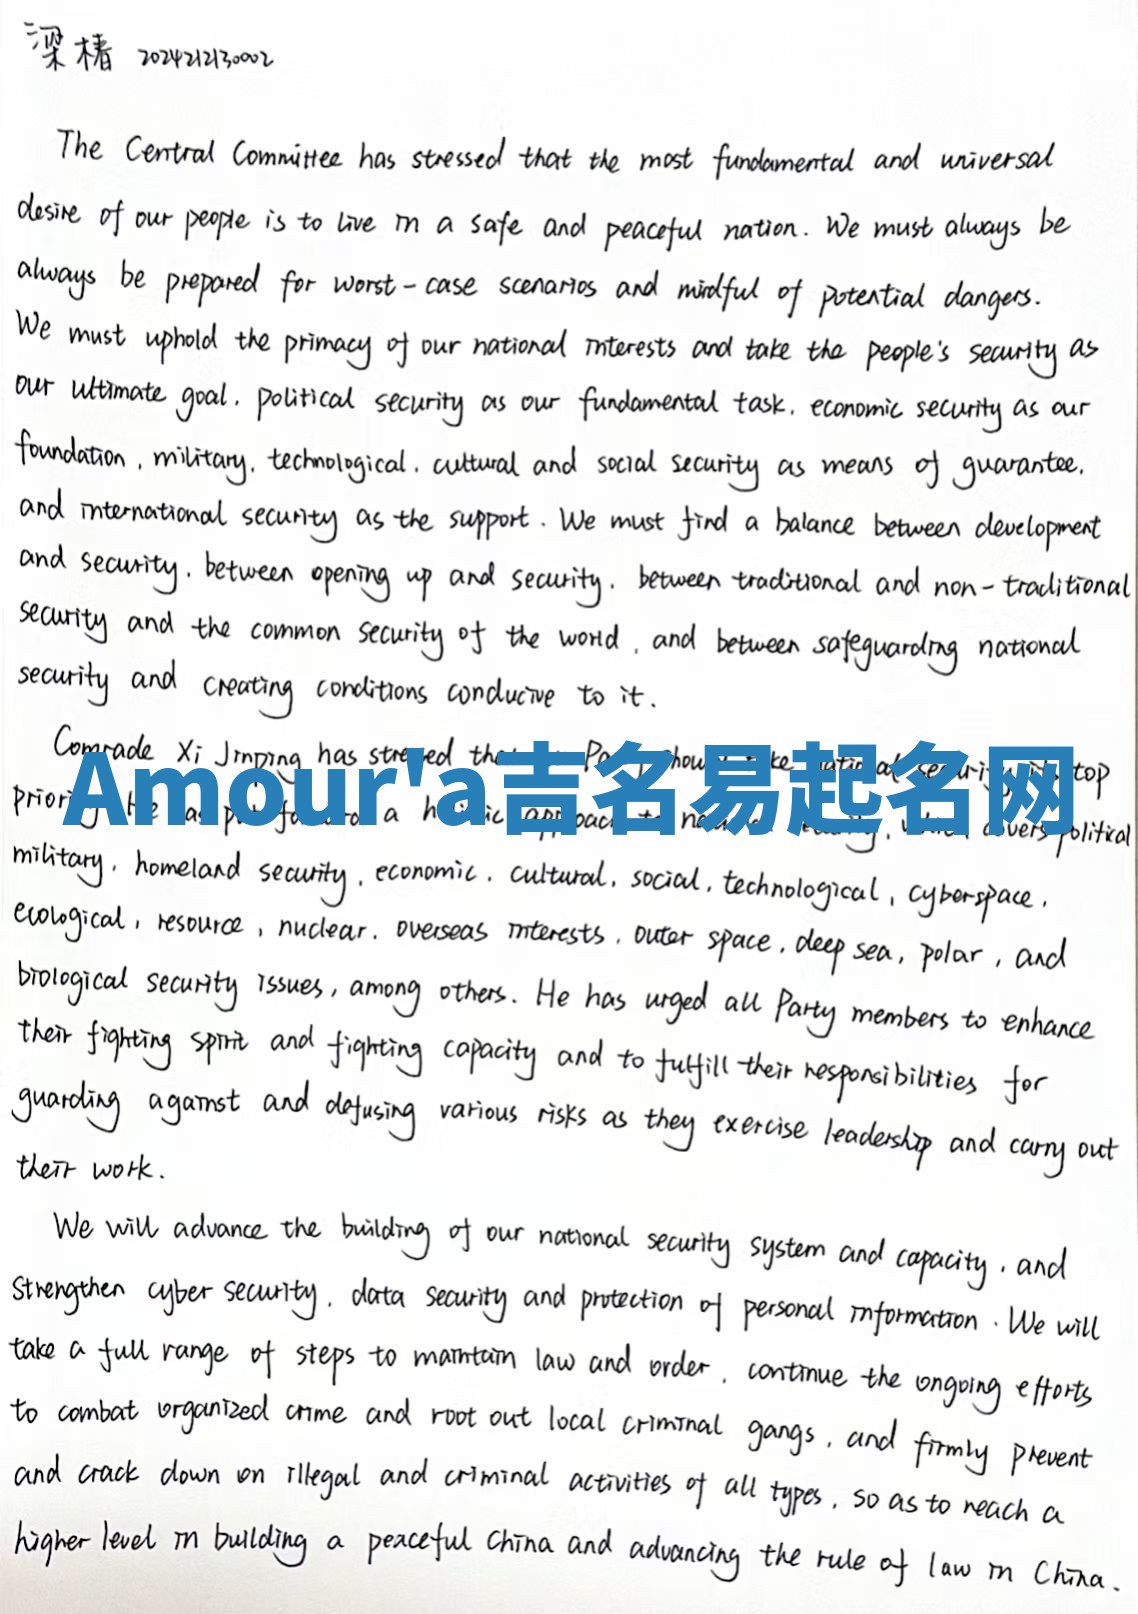 梁椿 2024212130002
The Central Committee has stressed that the most fundamental and universal
desire of our people is to live in a safe and peaceful nation. We must always be
always be prepared for worst-case scenarios and mindful of potential dangers.
We must uphold the primacy of our national interests and take the people's security as
our ultimate goal, political security as our fundamental task, economic security as our
foundation, military, technological, cultural and social security as means of guarantee,
and international security as the support. We must find a balance between development
and security, between opening up and security, between traditional and non-traditional
security and the common security of the world, and between safeguarding national
security and creating conditions conducive to it.
Comrade Xi Jinping has stressed that Party should take national security its top
Amour'a吉名易起名网
priority. He has put forward a holistic approach to national security, which covers political
military, homeland security, economic, cultural, social, technological, cyberspace,
ecological, resource, nuclear, overseas interests, outer space, deep sea, polar, and
biological security issues, among others. He has urged all Party members to enhance
their fighting spirit and fighting capacity and to fulfill their responsibilities for
guarding against and defusing various risks as they exercise leadership and carry out
their work.
We will advance the building of our national security system and capacity, and
strengthen cyber security, data security and protection of personal information. We will
take a full range of steps to maintain law and order, continue the ongoing efforts
to combat organized crime and root out local criminal gangs, and firmly prevent
and crack down on illegal and criminal activities of all types, so as to reach a
higher level in building a peaceful China and advancing the rule of law in China.